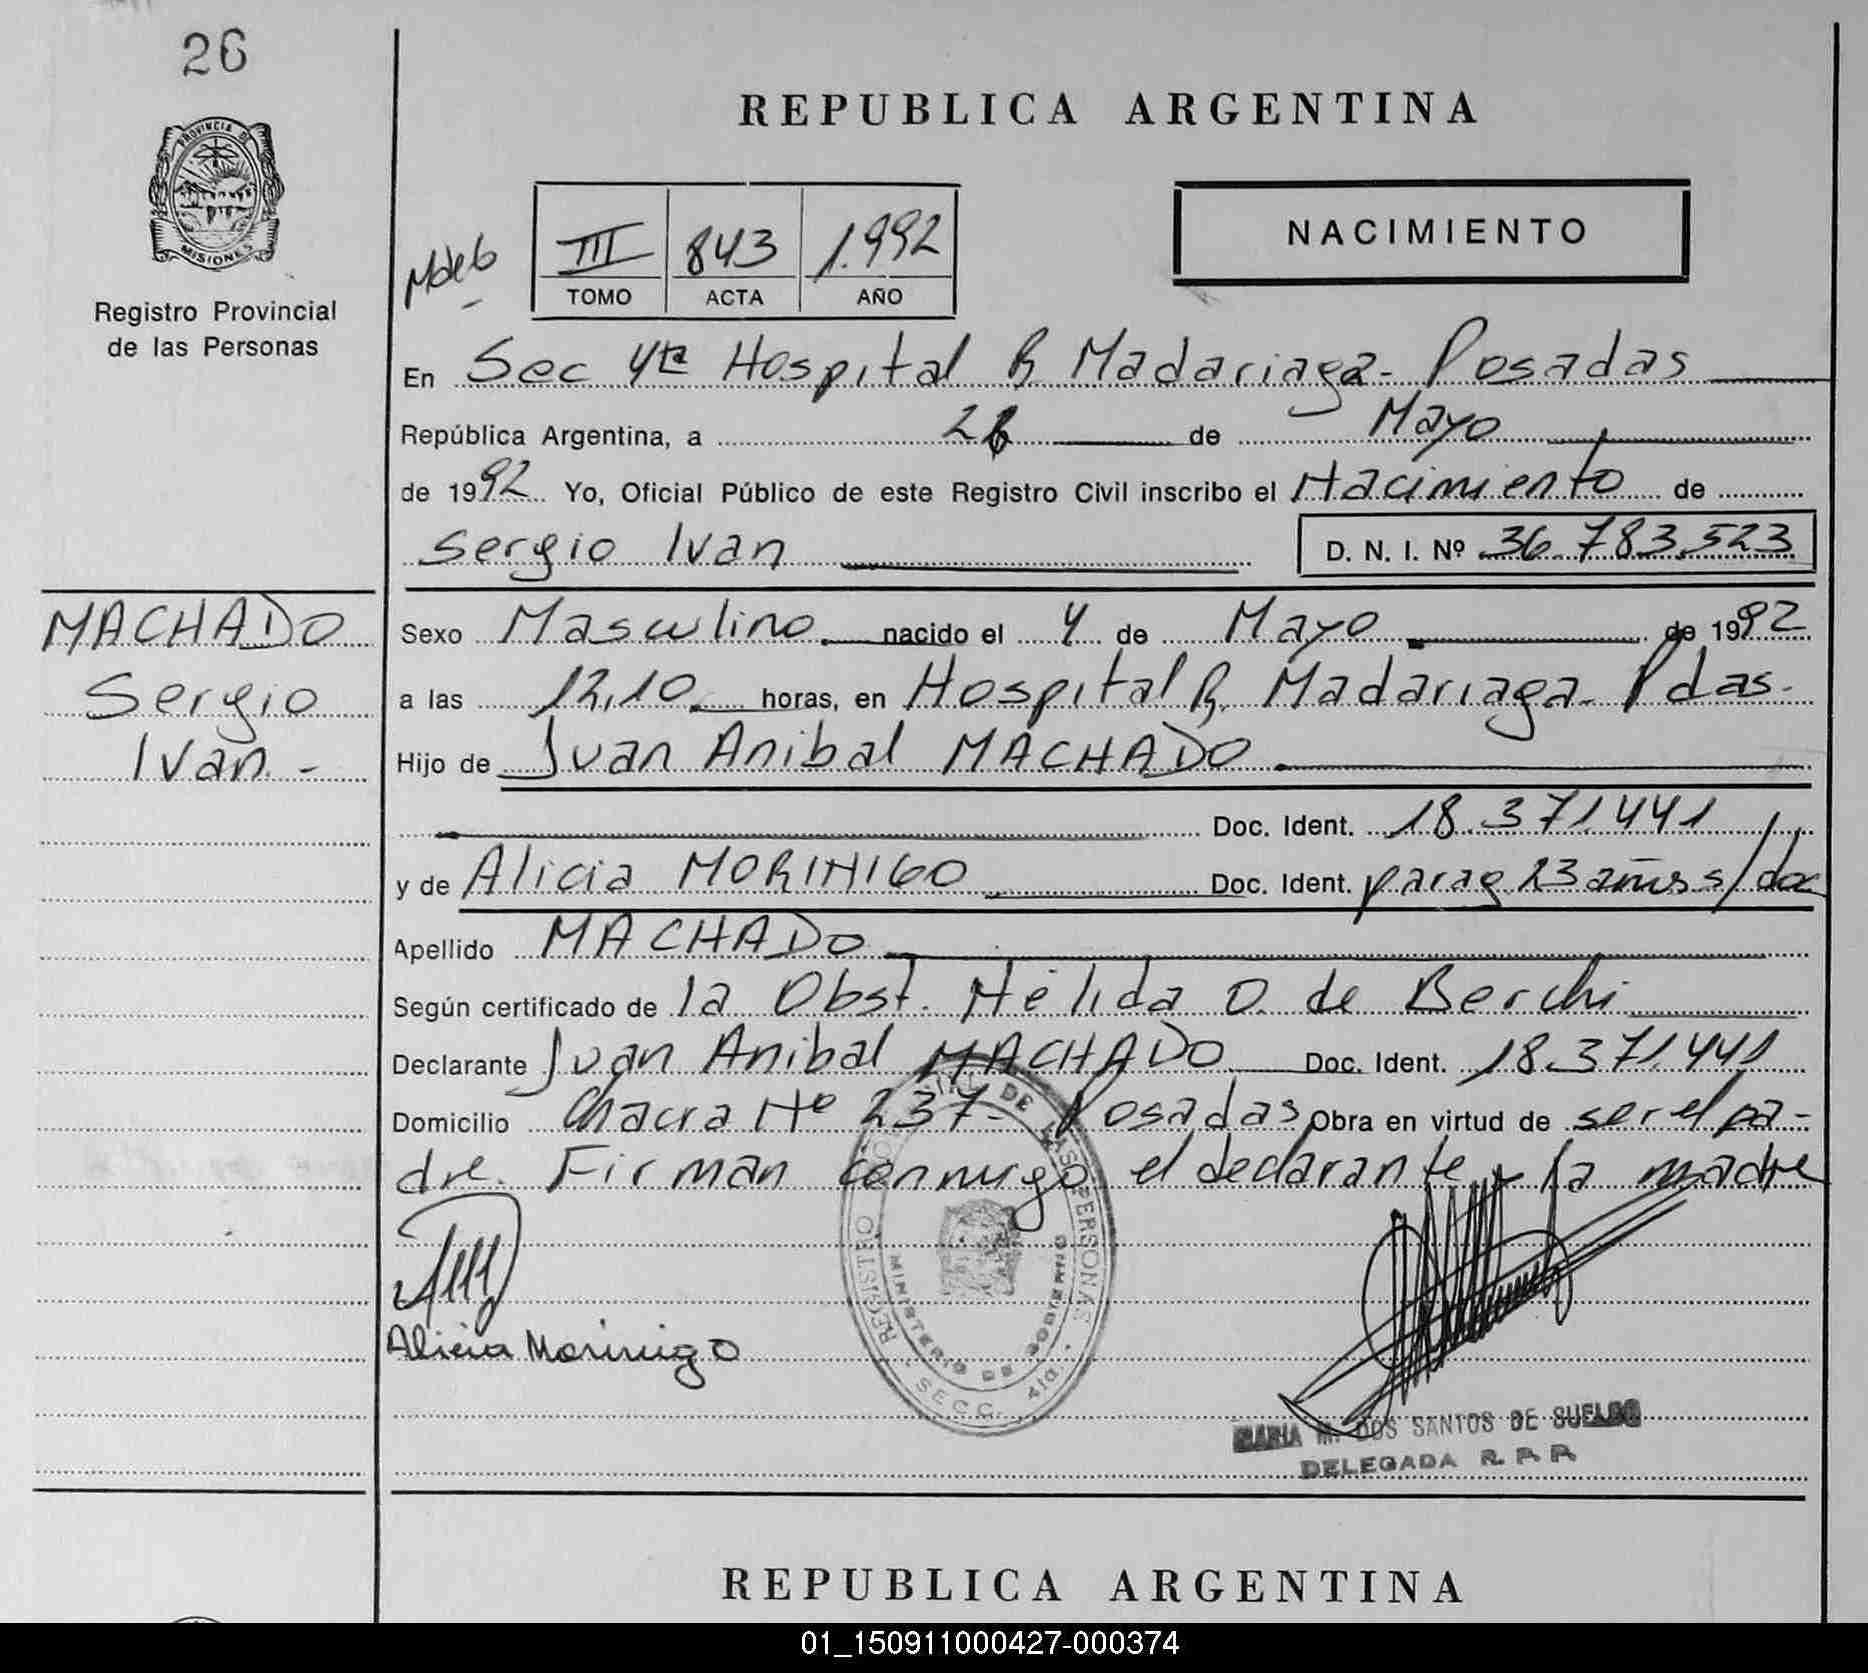 26
PROVINCIA DE
MISIONES
Registro Provincial
de las Personas
REPUBLICA ARGENTINA
NACIMIENTO
III 843 1.992
TOMO ACTA AÑO
En Sec 4ta Hospital R. Madariaga - Posadas
República Argentina, a de Mayo
de 1992 Yo, Oficial Público de este Registro Civil inscribo el Nacimiento de
Sergio Ivan D. N. I. Nº 36.783.523
MACHADO
Sergio
Ivan.-
Sexo Masculino nacido el 4 de Mayo de 1992
a las 12,10 horas, en Hospital R. Madariaga - Pdas.
Hijo de Juan Anibal MACHADO
Doc. Ident. 18.371.441
y de Alicia MORINIGO Doc. Ident. parag 23 años s/doc
Apellido MACHADO
Según certificado de la Obst. Nélida O. de Berchi
Declarante Juan Anibal MACHADO Doc. Ident. 18.371.441
Domicilio Chacra Nº 237 - Posadas Obra en virtud de ser el pa-
dre. Firman conmigo el declarante y la madre
Alicia Morinigo
REGISTRO CIVIL DE LAS PERSONAS
MINISTERIO DE GOBIERNO
SECC. 4ta.
MARIA M. DOS SANTOS DE SUELDO
DELEGADA R. P. P.
REPUBLICA ARGENTINA
01_150911000427-000374